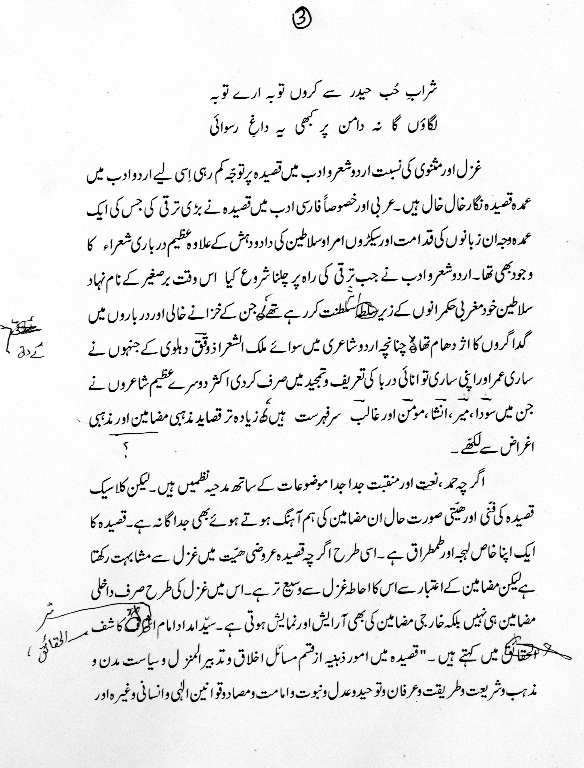 3
شرابِ حُبِ حیدر سے کروں توبہ ارے توبہ
لگاؤں گا نہ دامن پر کبھی یہ داغِ رسوائی
غزل اور مثنوی کی نسبت اردو شعر و ادب میں قصیدہ پر توجّہ کم رہی اِسی لیے اردو ادب میں
عمدہ قصیدہ نگار خال خال ہیں۔ عربی اور خصوصاً فارسی ادب میں قصیدہ نے بڑی ترقی کی جس کی ایک
عمدہ وجہ ان زبانوں کی قدامت اور سیکڑوں امرا و سلاطین کی داد و دہش کے علاوہ عظیم درباری شعراء کا
وجود بھی تھا۔ اردو شعر و ادب نے جب ترقی کی راہ پر چلنا شروع کیا اس وقت برصغیر کے نام نہاد
سلاطین خود مغربی حکمرانوں کے زیرِ سلطنت کر رہے تھے جن کے خزانے خالی اور درباروں میں
گداگروں کا اژدھام تھا چنانچہ اردو شاعری میں سوائے ملک الشعرا ذوقؔ دہلوی کے جنہوں نے
ساری عمر اور اپنی ساری توانائی دربا کی تعریف و تمجید میں صرف کردی اکثر دوسرے عظیم شاعروں نے
جن میں سوداؔ، میرؔ، انشاؔ، مومنؔ اور غالبؔ سرفہرست ہیں زیادہ تر قصاید مذہبی مضامین اور مذہبی
اغراض سے لکھّے۔
؟
اگرچہ حمد، نعت اور منقبت جدا جدا موضوعات کے ساتھ مدحیہ نظمیں ہیں۔ لیکن کلاسیک
قصیدہ کی فنّی اور ھیّتی صورت حال ان مضامین کی ہم آہنگ ہوتے ہوئے بھی جداگانہ ہے۔ قصیدہ کا
ایک اپنا خاص لہجہ اور طمطراق ہے۔ اسی طرح اگرچہ قصیدہ عروضی ھیّت میں غزل سے مشابہت رکھتا
ہے لیکن مضامین کے اعتبار سے اس کا احاطہ غزل سے وسیع تر ہے۔ اس میں غزل کی طرح صرف داخلی
مضامین ہی نہیں بلکہ خارجی مضامین کی بھی آرایش اور نمایش ہوتی ہے۔ سیّد امداد امام اثر کاشف
الحقائق میں کہتے ہیں۔ "قصیدہ میں امور ذہنیہ از قسم مسائل اخلاق و تدبیر المنزل و سیاست مدن و
مذہب و شریعت و طریقت و عرفان و توحید و عدل و نبوت و امامت و مصادو قوانین الٰہی و انسانی وغیرہ اور